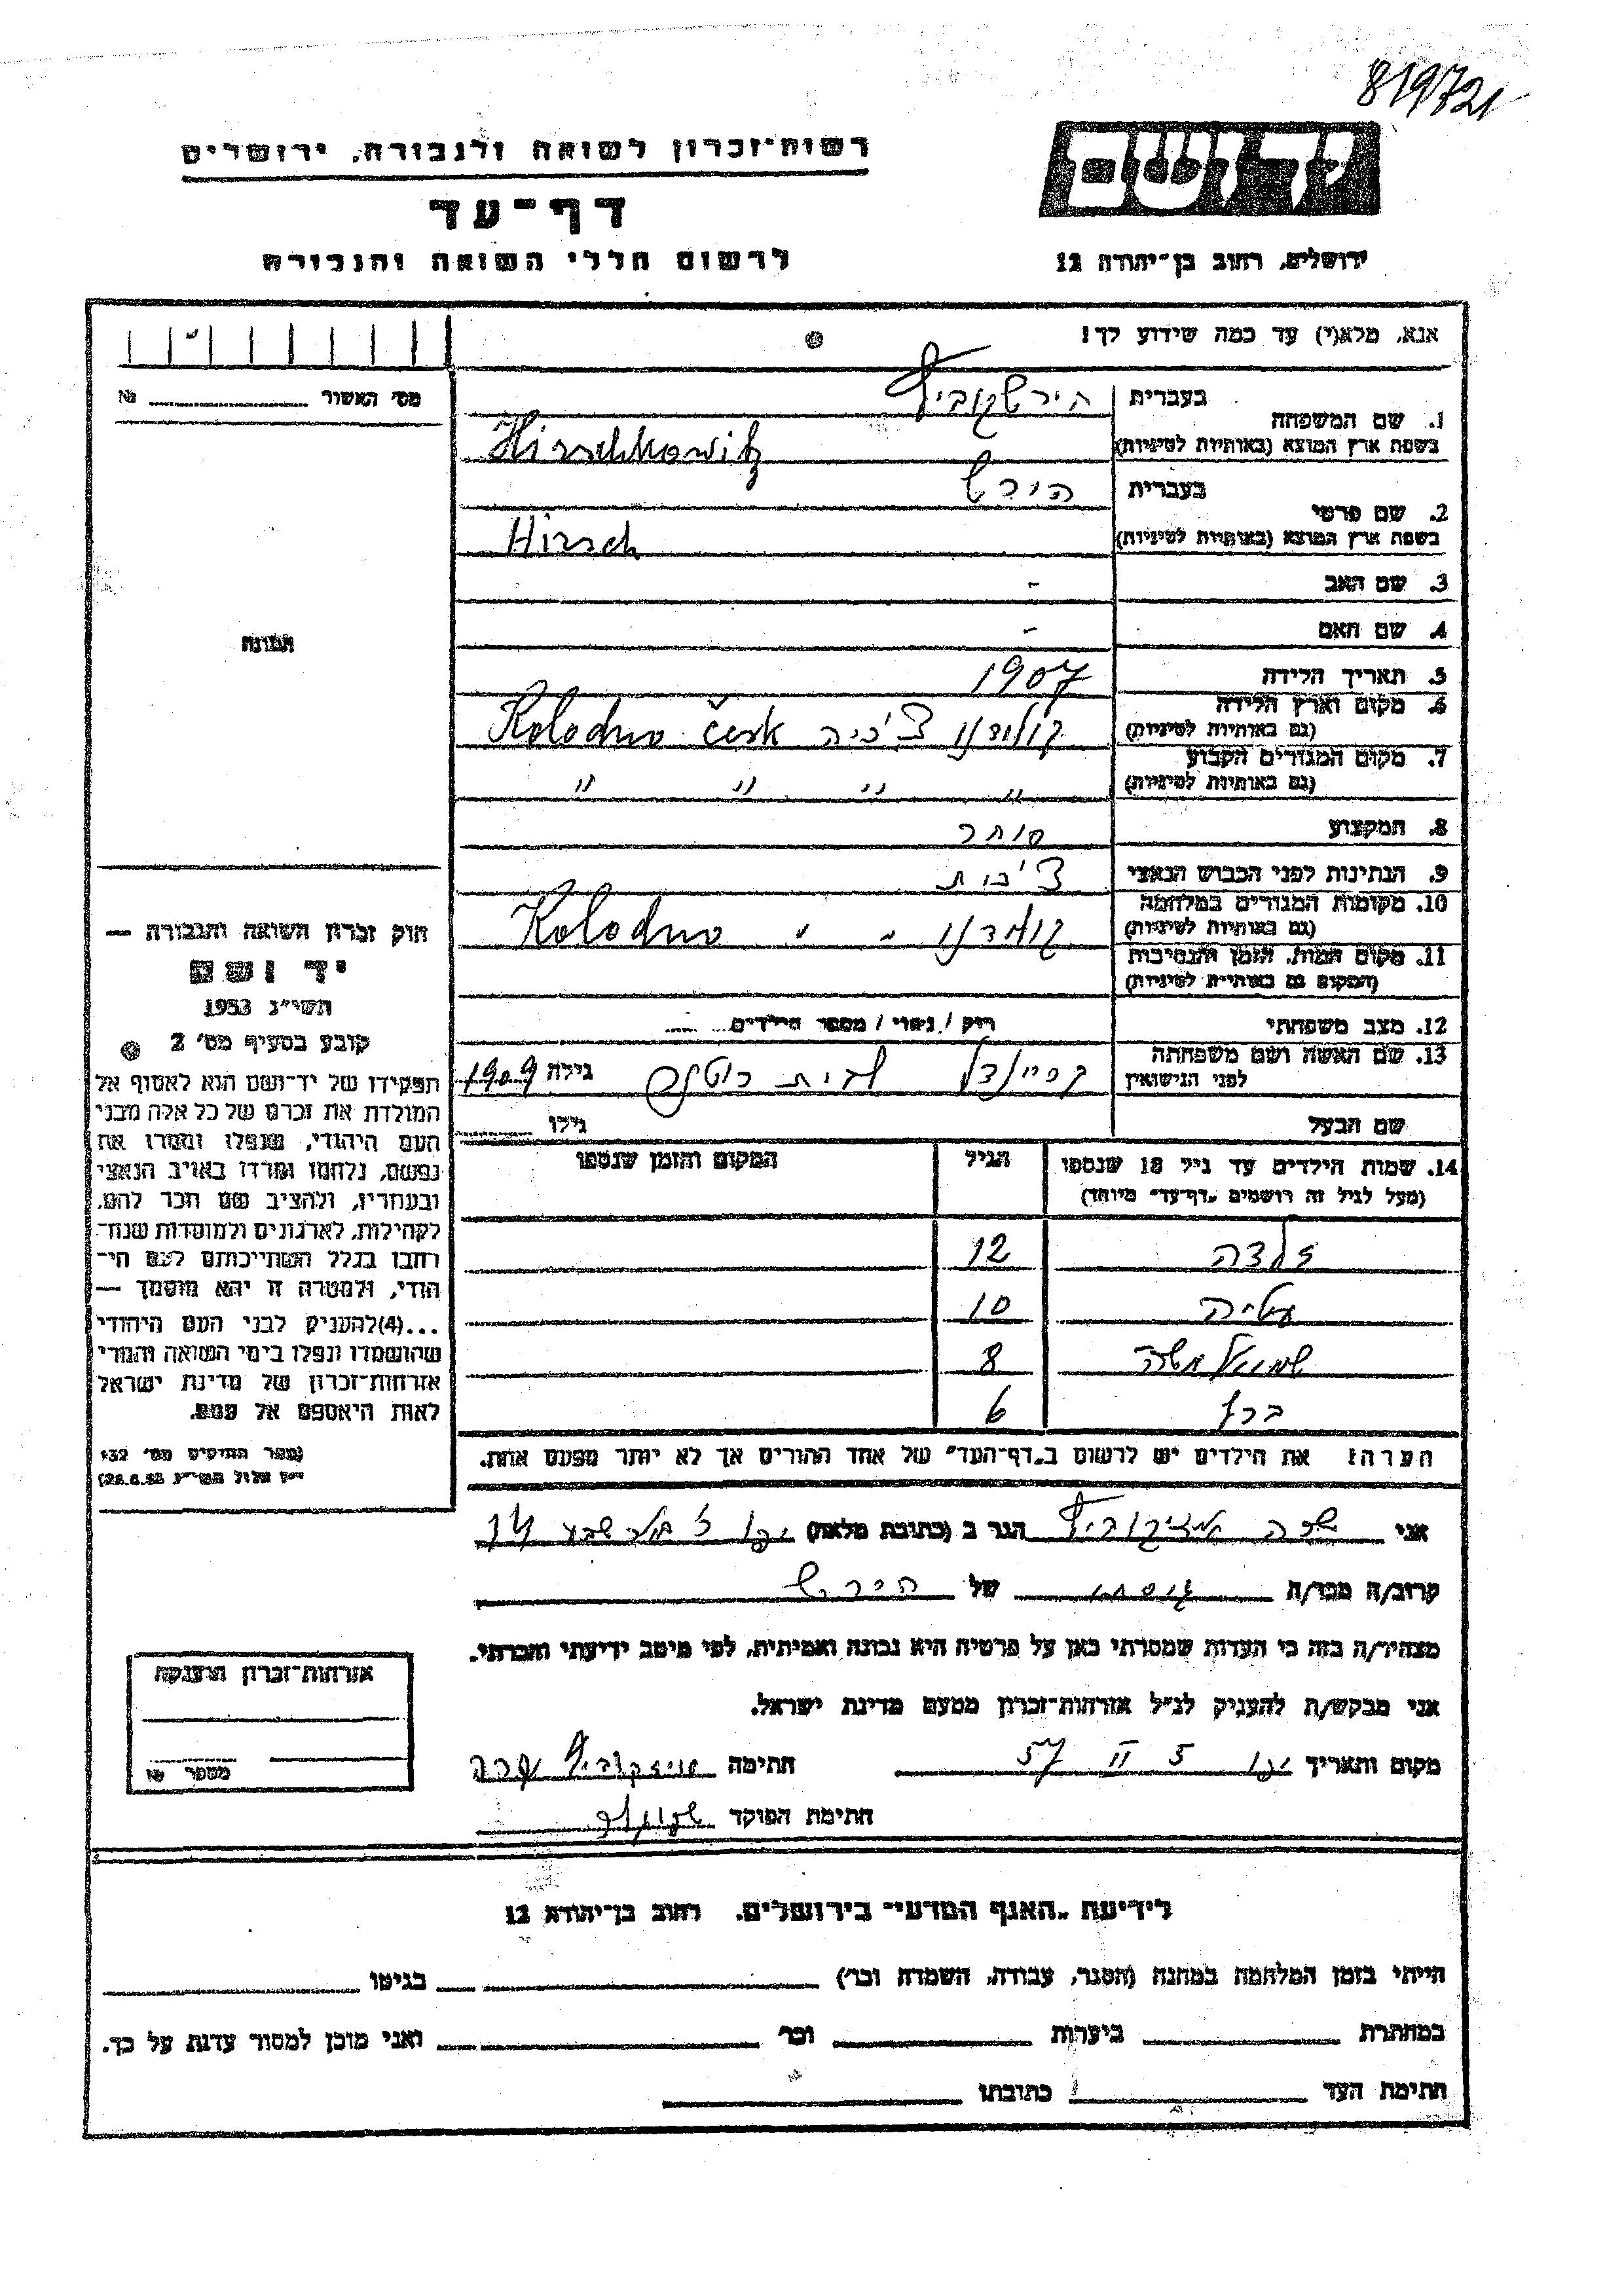 819721
רשות־זכרון לשואה ולגבורה, ירושלים
דף־עד
לרשום חללי השואה והגבורה
יד ושם
ירושלים, רחוב בן־יהודה 12
אנא, מלא(י) עד כמה שידוע לך!
מס׳ האשור № 
1. שם המשפחה
בעברית הירשקוביץ
בשפת ארץ המוצא (באותיות לטיניות) Hirschkowitz
2. שם פרטי
בעברית הירש
בשפת ארץ המוצא (באותיות לטיניות) Hirsch
3. שם האב -
4. שם האם -
5. תאריך הלידה 1907
6. מקום וארץ הלידה
(גם באותיות לטיניות) קולודנו צ'כיה Kolodno
7. מקום המגורים הקבוע
(גם באותיות לטיניות) " " " "
8. המקצוע סוחר
9. הנתינות לפני הכבוש הנאצי צ'כית
10. מקומות המגורים במלחמה
(גם באותיות לטיניות) קולודנו " " Kolodno
11. מקום המות, הזמן והנסיבות
(המקום גם באותיות לטיניות)
12. מצב משפחתי רווק / נשוי / מספר הילדים
13. שם האשה ושם משפחתה
לפני הנישואין לבית גילה 1909
שם הבעל גילו
תמונה
חוק זכרון השואה והגבורה —
יד ושם
תשי״ג 1953
קובע בסעיף מס׳ 2
תפקידו של יד־ושם הוא לאסוף אל
המולדת את זכרם של כל אלה מבני
העם היהודי, שנפלו ומסרו את
נפשם, נלחמו ומרדו באויב הנאצי
ובעוזריו, ולהציב שם וזכר להם,
לקהילות, לארגונים ולמוסדות שנח־
רבו בגלל השתייכותם לעם הי־
הודי, ולמטרה זו יהא מוסמך —
...(4)להעניק לבני העם היהודי
שהושמדו ונפלו בימי השואה והמרי
אזרחות־זכרון של מדינת ישראל
לאות היאספם אל עמם.
(ספר החוקים מס׳ 132
י״ז אלול תשי״ג 28.8.53)
14. שמות הילדים עד גיל 18 שנספו הגיל המקום והזמן שנספו
(מעל לגיל זה רושמים „דף־עד״ מיוחד)
12
10
שמואל משה 8
ברל 6
הערה! את הילדים יש לרשום ב„דף־העד״ של אחד ההורים אך לא יותר מפעם אחת.
אני שרה איציקוביץ הגר ב (כתובת מלאה) יפו
קרוב/ה מכר/ה של הירש
מצהיר/ה בזה כי העדות שמסרתי כאן על פרטיה היא נכונה ואמיתית, לפי מיטב ידיעתי והכרתי.
אני מבקש/ת להעניק לנ״ל אזרחות־זכרון מטעם מדינת ישראל.
מקום ותאריך יפו 5 II 57 חתימה איציקוביץ שרה
חתימת הפוקד
אזרחות־זכרון הוענקה
מספר №
לידיעת „האגף המדעי״ בירושלים, רחוב בן־יהודה 12
הייתי בזמן המלחמה במחנה (הסגר, עבודה, השמדה וכו׳) בגיטו
במחתרת ביערות וכו׳ ואני מוכן למסור עדות על כך.
חתימת העד כתובתו